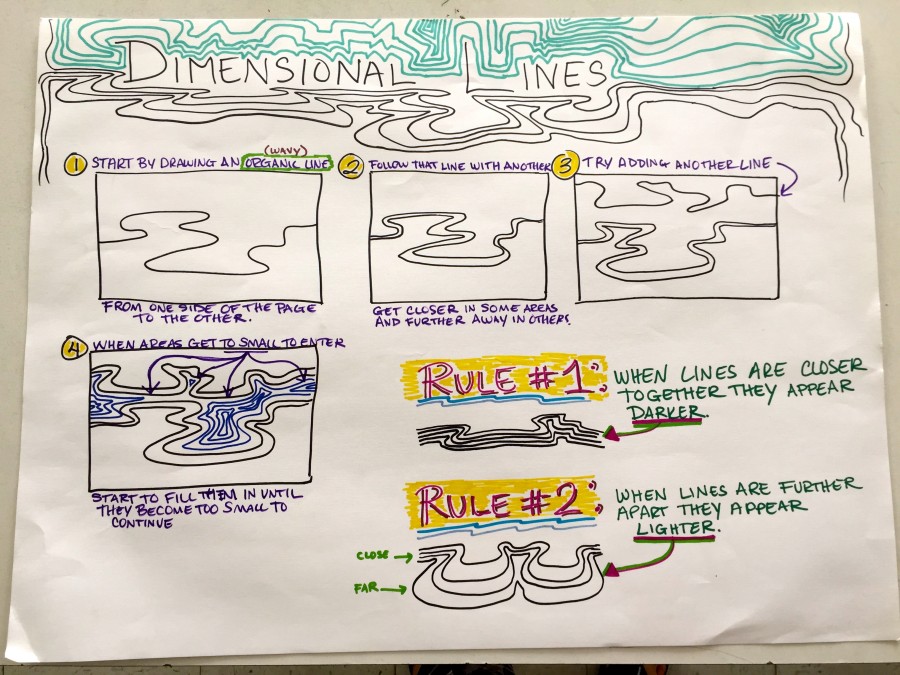 DIMENSIONAL LINES
1 START BY DRAWING AN ORGANIC LINE
(WAVY)
FROM ONE SIDE OF THE PAGE
TO THE OTHER.
2 FOLLOW THAT LINE WITH ANOTHER
GET CLOSER IN SOME AREAS
AND FURTHER AWAY IN OTHERS.
3 TRY ADDING ANOTHER LINE
4 WHEN AREAS GET TO SMALL TO ENTER
START TO FILL THEM IN UNTIL
THEY BECOME TOO SMALL TO
CONTINUE
RULE #1:
WHEN LINES ARE CLOSER
TOGETHER THEY APPEAR
DARKER.
RULE #2:
WHEN LINES ARE FURTHER
APART THEY APPEAR
LIGHTER.
CLOSE
FAR